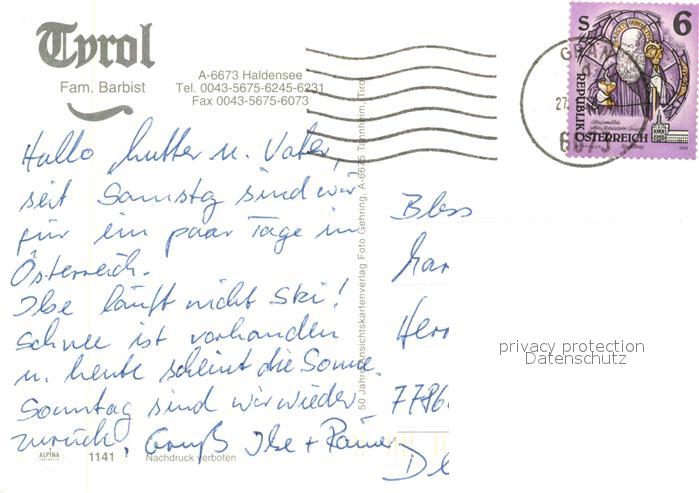 Tyrol
Fam. Barbist
A-6673 Haldensee
Tel. 0043-5675-6245-6231
Fax 0043-5675-6073
Hallo Mutter u. Vater,
seit Samstag sind wir
für ein paar Tage in
Österreich.
Ilse läuft nicht Ski!
Schnee ist vorhanden
u. heute scheint die Sonne.
Sonntag sind wir wieder
zurück. Gruß Ilse + Rainer
ALPINA
1141
Nachdruck verboten
50 Jahre Ansichtskartenverlag Foto Gehring, A-6675 Tannheim, Tirol
S 6
REPUBLIK
ÖSTERREICH
27.
Bless
Herr
7786
privacy protection
Datenschutz